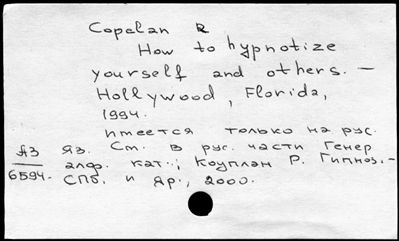 Copelan R
How to hypnotize
yourself and others. —
Hollywood, Florida,
1994.
имеется только на рус.
яз. См. в рус. части Генер
алф. кат.; Коуплан Р. Гипноз. —
СПб. и др., 2000.
А3
6594.